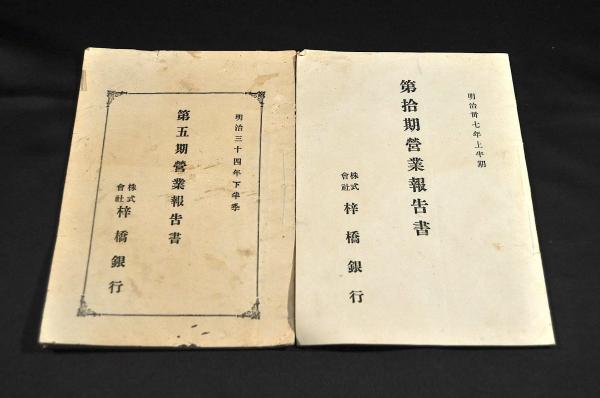 明治卅七年上半期
第拾期營業報告書
株式會社 梓橋銀行
明治三十四年下半季
第五期營業報告書
株式會社 梓橋銀行